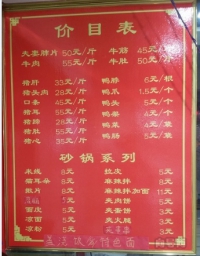 价目表
夫妻肺片 50元/斤 牛筋 45元/斤
牛肉 55元/斤 牛肚 50元/斤
猪肝 35元/斤 鸭脖 6元/根
猪头肉 28元/斤 鸭爪 1.5元/个
口条 45元/斤 鸭头 4元/个
猪耳 55元/斤 鸭蛋
猪蹄 鸭翅
猪肚 55元/斤 鸭 5元/袋
猪心 35元/斤 鸭肠 5元/袋
砂锅系列
米线 8元 拉皮 5元
猫耳朵 8元 麻辣拌 8元
散片 8元 麻辣拌加面 11元
8元 夹肉饼
面皮 5元 夹蛋饼
凉面 5元 夹火腿 3元
凉粉 5元 夹菜
特色面